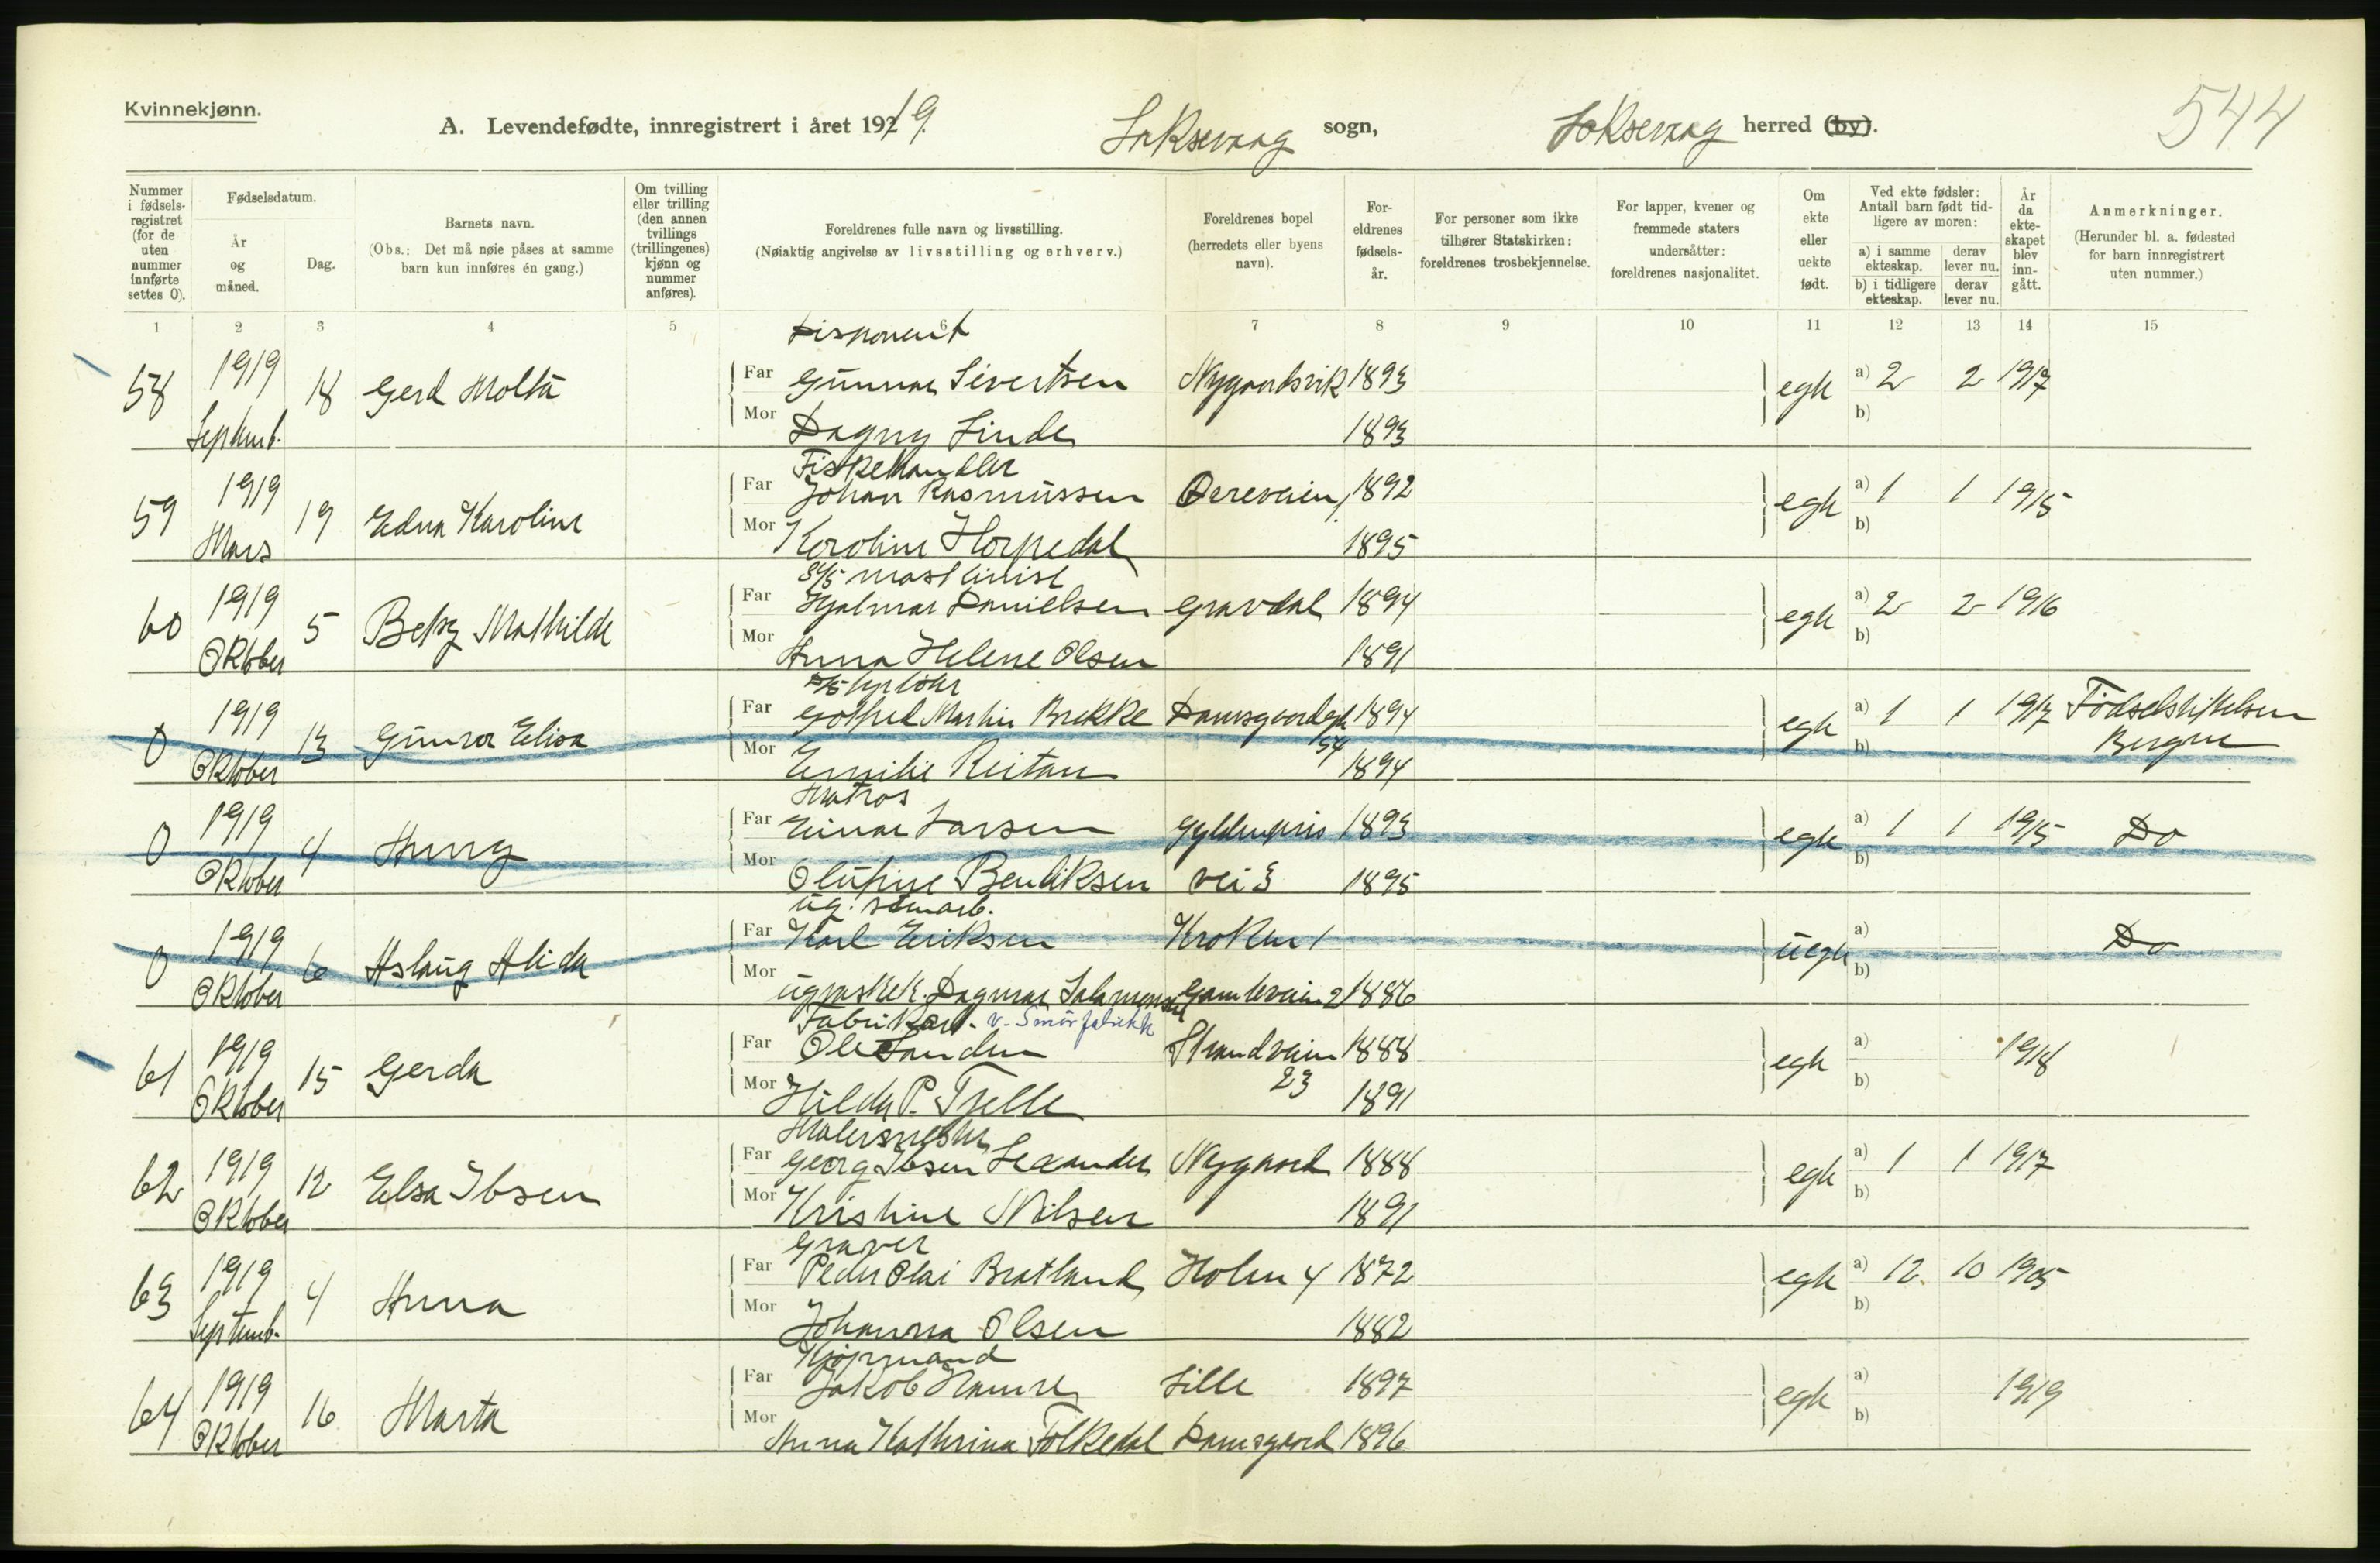 Kvinnekjønn.
A. Levendefødte, innregistrert i året 1919. Laksevaag sogn, Laksevaag herred (by).
544
Nummer i fødsels- registret (for de uten nummer innførte settes 0).
Fødselsdatum.
År og måned.
Dag.
Barnets navn.
(Obs.: Det må nøie påses at samme barn kun innføres én gang.)
Om tvilling eller trilling (den annen tvillings (trillingenes) kjønn og nummer anføres).
Foreldrenes fulle navn og livsstilling.
(Nøiaktig angivelse av livsstilling og erhverv.)
Foreldrenes bopel (herredets eller byens navn).
For- eldrenes fødsels- år.
For personer som ikke tilhører Statskirken: foreldrenes trosbekjennelse.
For lapper, kvener og fremmede staters undersåtter: foreldrenes nasjonalitet.
Om ekte eller uekte født.
Ved ekte fødsler: Antall barn født tid- ligere av moren:
a) i samme ekteskap.
derav lever nu.
b) i tidligere ekteskap.
derav lever nu.
År da ekte- skapet blev inn- gått.
Anmerkninger.
(Herunder bl. a. fødested for barn innregistrert uten nummer.)
1 2 3 4 5 6 7 8 9 10 11 12 13 14 15
Disponent
58 1919 Septemb. 18 Gerd Molta Far Gunnar Sivertsen Nygaardsvik 1893 egte a) 2 2 1917
Mor Dagny Linde 1893 b)
Fiskehandler
59 1919 Mars 19 Edna Karoline Far Johan Rasmussen 1892 egte a) 1 1 1915
Mor Karoline Horpedal 1895 b)
D/S maskinist
60 1919 Oktober 5 Betsy Mathilde Far Hjalmar Danielsen Gravdal 1894 egte a) 2 2 1916
Mor Anna Helene Olsen 1891 b)
D/S fyrbøter
0 1919 Oktober 13 Gunvor Elisa Far Gotfred Martin Brekke Damsgaardsgt 1894 egte a) 1 1 1917 Fødselstiftelsen
Mor Emilie Reitan 54 1894 b) Bergen
Matros
0 1919 Oktober 4 Anny Far Einar Larsen Gyldenpris 1893 egte a) 1 1 1915 Do
Mor Olufine Bendiksen vei 3 1895 b)
ug. sømarb.
0 1919 Oktober 6 Aslaug Alida Far Karl Eriksen Kroken 1 uegte a) Do
Mor Dagmar Salamonsen Gamleveien 2 1886 b)
Fabrikarb. v. Smørfabrikk
61 1919 Oktober 15 Gerda Far Ole Sanden Strandveien 1888 egte a) 1918
Mor Hilda P. Tjelle 23 1891 b)
Malersvend
62 1919 Oktober 12 Elsa Ibsen Far Georg Ibsen Lexander Nygaard 1888 egte a) 1 1 1917
Mor Kristine Nilsen 1891 b)
Graver
63 1919 Septemb. 4 Anna Far Peder Olai Bratland Holen 4 1872 egte a) 12. 10 1905
Mor Johanna Olsen 1882 b)
Kjøpmand
64 1919 Oktober 16 Marta Far Jakob Hamre Lille 1897 egte a) 1919
Mor Anna Kathrina Folkedal Damsgaard 1896 b)